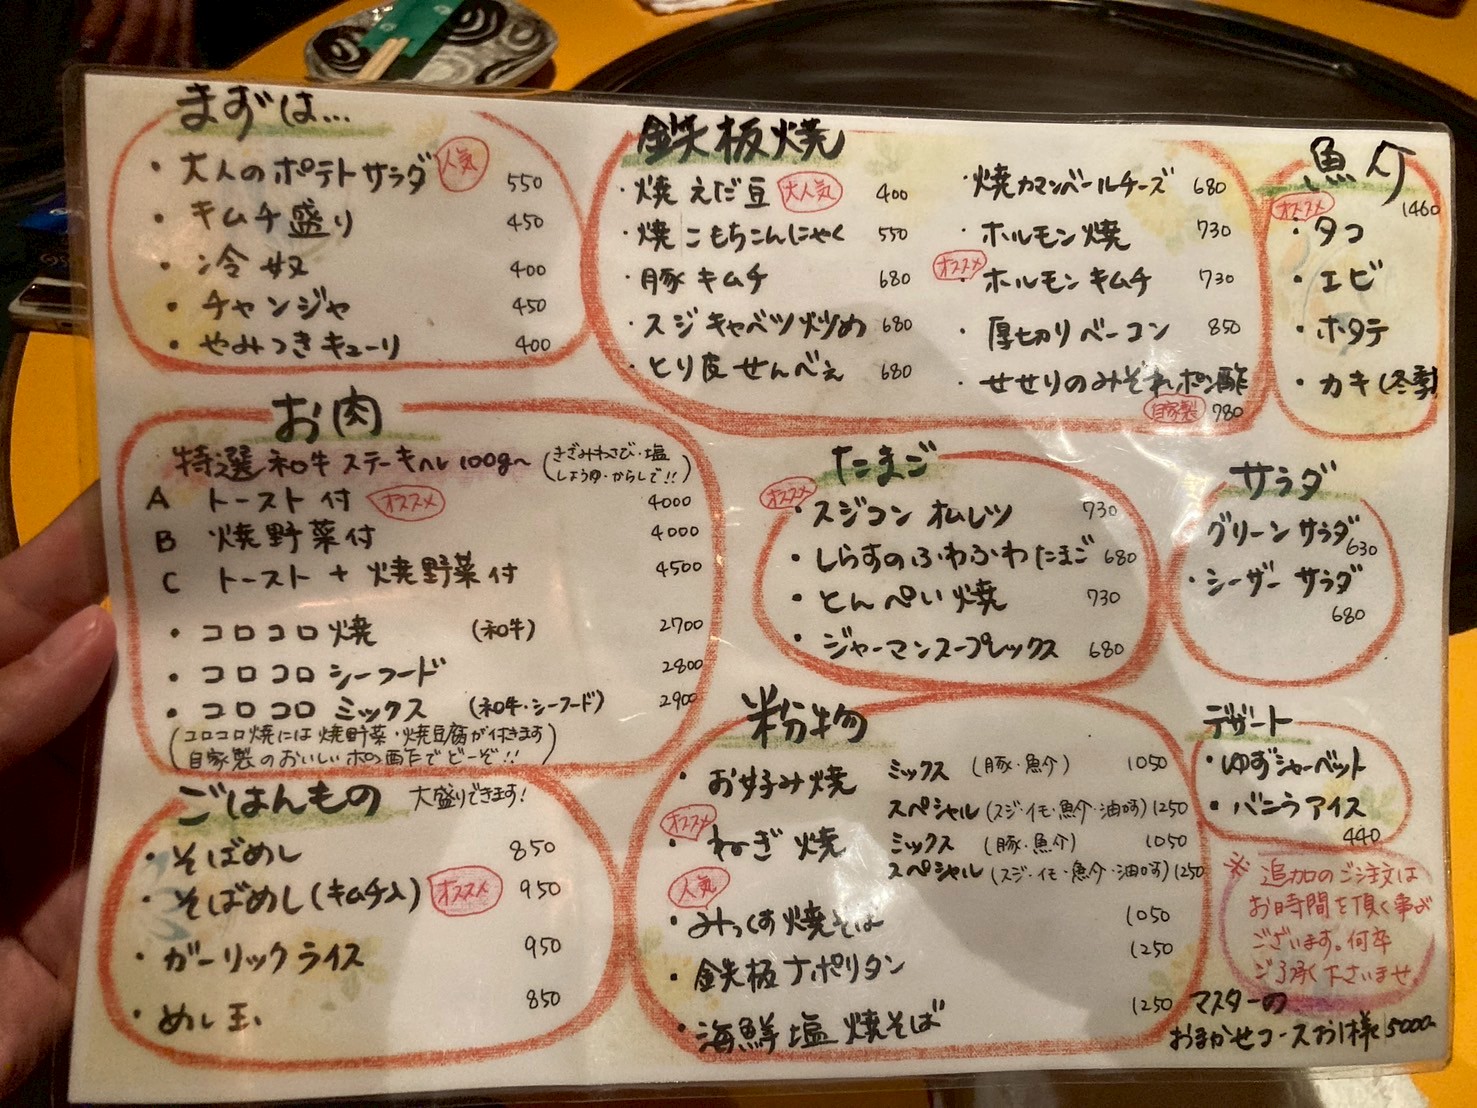 まずは...
・大人のポテトサラダ 人気 550
・キムチ盛り 450
・冷奴 400
・チャンジャ 450
・やみつきキューリ 400
鉄板焼
・焼えだ豆 大人気 400
・焼こもちこんにゃく 550
・豚キムチ 680
・スジキャベツ炒め 680
・とり皮せんべえ 680
・焼カマンベールチーズ 680
・ホルモン焼 730
オススメ
・ホルモンキムチ 730
・厚切りベーコン 850
・せせりのみぞれポン酢
自家製 780
魚介
1460
オススメ
・タコ
・エビ
・ホタテ
・カキ(冬季)
お肉
特選和牛ステーキヘレ100g〜 (きざみわさび・塩
しょうゆ・からしで!!)
A トースト付 オススメ 4000
B 焼野菜付 4000
C トースト+焼野菜付 4500
・コロコロ焼 (和牛) 2700
・コロコロシーフード 2800
・コロコロミックス (和牛・シーフード) 2900
(コロコロ焼には焼野菜・焼豆腐が付きます
自家製のおいしいポン酢でどーぞ!!)
たまご
オススメ
・スジコンオムレツ 730
・しらすのふわふわたまご 680
・とんぺい焼 730
・ジャーマンスープレックス 680
サラダ
グリーンサラダ 630
・シーザーサラダ
680
ごはんもの 大盛りできます!
・そばめし 850
・そばめし(キムチ入) オススメ 950
・ガーリックライス 950
・めし玉 850
粉物
・お好み焼 ミックス (豚・魚介) 1050
スペシャル(スジ・イモ・魚介・油カス) 1250
オススメ
・ねぎ焼 ミックス (豚・魚介) 1050
スペシャル(スジ・イモ・魚介・油カス) 1250
人気
・みっくす焼そば 1050
・鉄板ナポリタン 1250
・海鮮塩焼そば 1250
デザート
・ゆずシャーベット
・バニラアイス
440
※追加のご注文は
お時間を頂く事が
ございます。何卒
ご了承下さいませ
マスターの
おまかせコースお1人様 5000〜